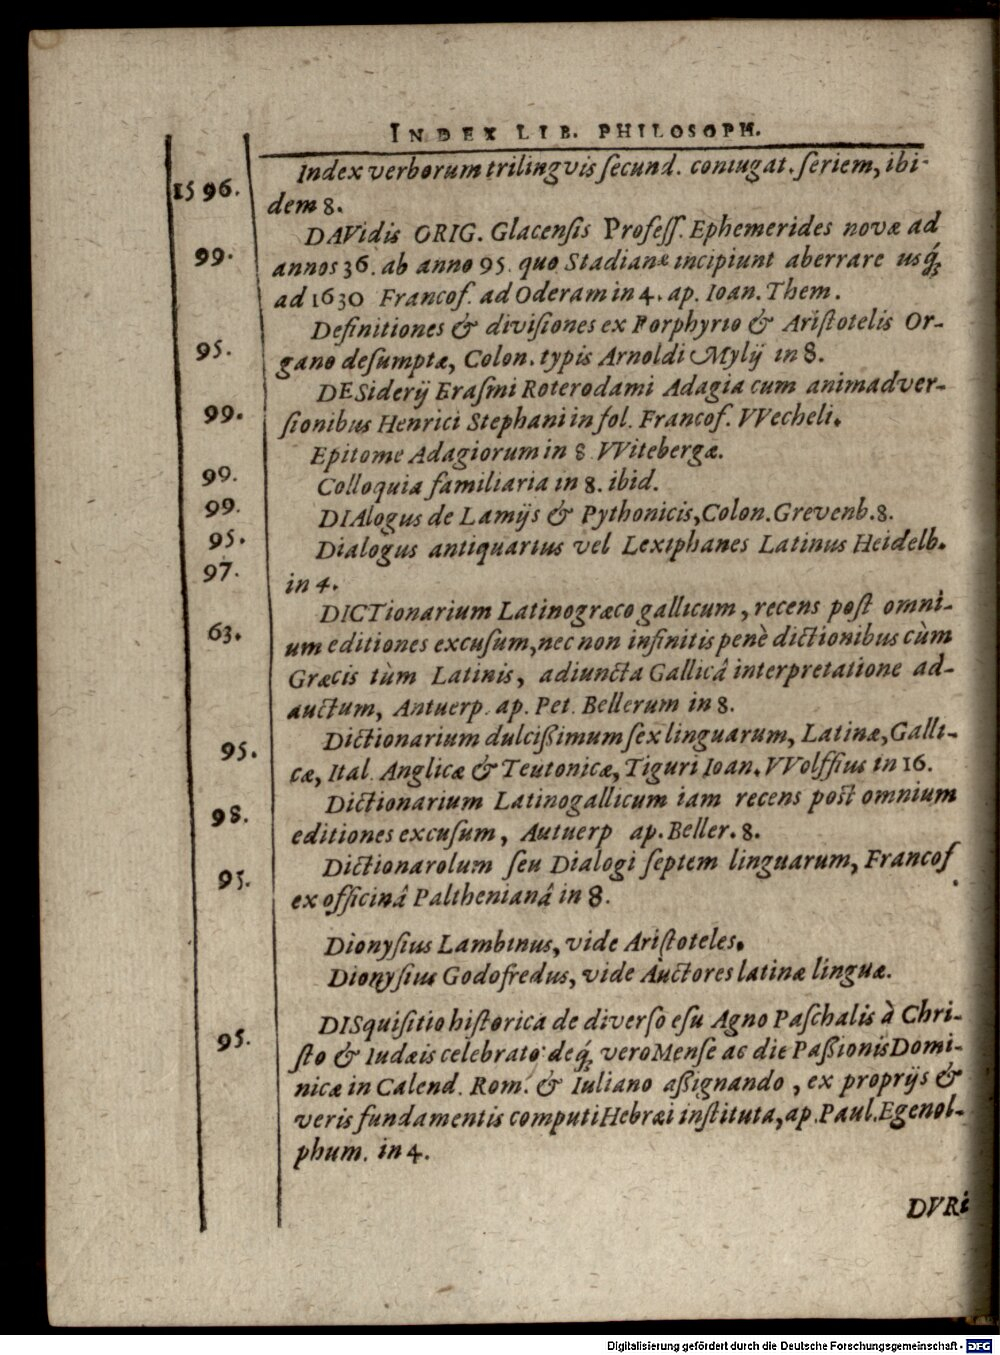 INDEX LIB. PHILOSOPH.
Index verborum trilinguis ſecund. coniugat. ſeriem, ibi-
1596. dem 8.
DAVidis ORIG. Glacenſis Profeſſ. Ephemerides novæ ad
99. annos 36. ab anno 95. quo Stadianæ incipiunt aberrare usq́ꝫ
ad 1630 Francof. ad Oderam in 4. ap. Ioan. Them.
Definitiones & diviſiones ex Porphyrio & Ariſtotelis Or-
95. gano deſumptæ, Colon. typis Arnoldi Mylij in 8.
DESiderij Eraſmi Roterodami Adagia cum animadver-
99. ſionibus Henrici Stephani in fol. Francof. VVecheli.
Epitome Adagiorum in 8 VVitebergæ.
99. Colloquia familiaria in 8. ibid.
99. DIAlogus de Lamijs & Pythonicis, Colon. Grevenb. 8.
95. Dialogus antiquarius vel Lexiphanes Latinus Heidelb.
97. in 4.
DICTionarium Latinogræco gallicum, recens poſt omni-
63. um editiones excuſum, nec non infinitis penè dictionibus cùm
Græcis tùm Latinis, adiuncta Gallicâ interpretatione ad-
auctum, Antuerp. ap. Pet. Bellerum in 8.
Dictionarium dulcißimum ſex linguarum, Latinæ, Galli-
95. cæ, Ital. Anglicæ & Teutonicæ, Tiguri Ioan. VVolffius in 16.
Dictionarium Latinogallicum iam recens poſt omnium
98. editiones excuſum, Autuerp ap. Beller. 8.
Dictionarolum ſeu Dialogi ſeptem linguarum, Francof
95. ex officinâ Paltheniană in 8.
Dionyſius Lambinus, vide Ariſtoteles.
Dionyſius Godofredus, vide Auctores latinæ linguæ.
DISquiſitio hiſtorica de diverſo eſu Agno Paſchalis à Chri-
95. ſto & Iudæis celebrato: deq́ꝫ vero Menſe ac die Paßionis Domi-
nicæ in Calend. Rom. & Iuliano aßignando, ex proprijs &
veris fundamentis computi Hebræi inſtituta, ap. Paul. Egenol-
phum. in 4.
DVRi
Digitalisierung gefördert durch die Deutsche Forschungsgemeinschaft - DFG